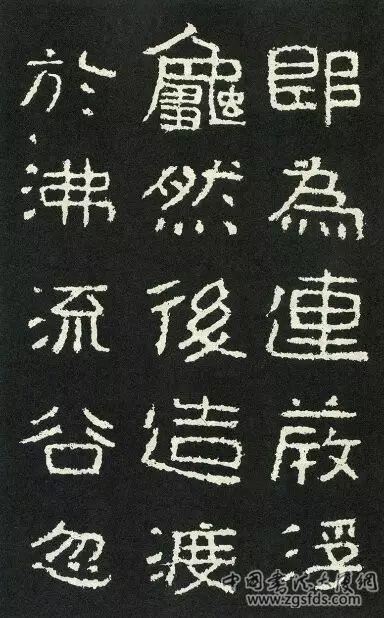 即為連葭浮
龜然後造渡
於沸流谷忽
中國書法大師網
www.zgsfds.com